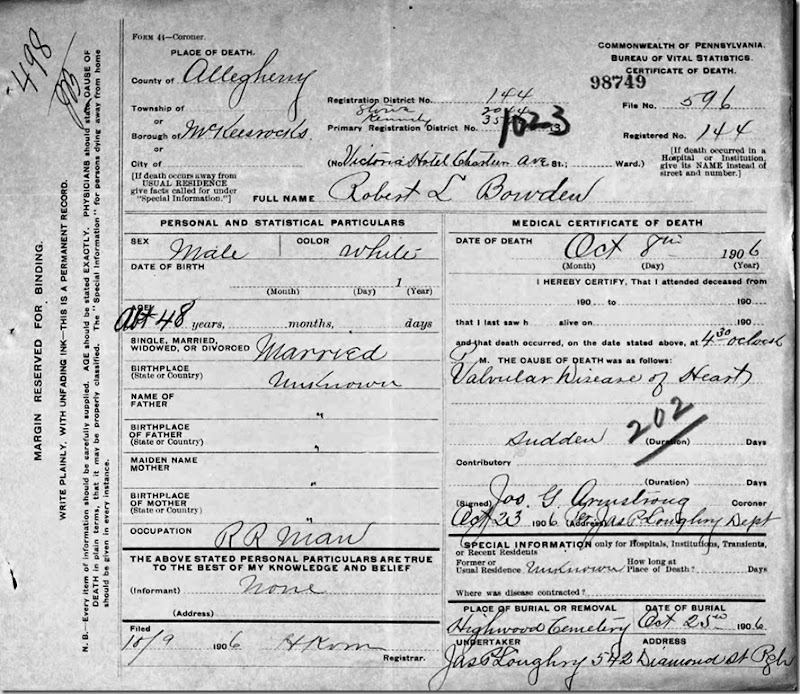 FORM 44—Coroner.
498
PLACE OF DEATH.
County of Allegheny
Township of
or
Borough of McKeesrocks
or
City of
[If death occurs away from
USUAL RESIDENCE
give facts called for under
"Special Information."]
COMMONWEALTH OF PENNSYLVANIA.
BUREAU OF VITAL STATISTICS.
CERTIFICATE OF DEATH.
98749
Registration District No. 144
File No. 596
Stowe
Kennedy
Primary Registration District No.
1023
Registered No. 144
(No Victoria Hotel Chartiers Ave St.; Ward.)
[If death occurred in a
Hospital or Institution,
give its NAME instead of
street and number.]
FULL NAME Robert L Bowden
MARGIN RESERVED FOR BINDING.
WRITE PLAINLY, WITH UNFADING INK—THIS IS A PERMANENT RECORD.
N. B.—Every item of information should be carefully supplied. AGE should be stated EXACTLY. PHYSICIANS should state CAUSE OF
DEATH in plain terms, that it may be properly classified. The "Special Information" for persons dying away from home
should be given in every instance.
PERSONAL AND STATISTICAL PARTICULARS
SEX Male
COLOR White
DATE OF BIRTH
1
(Month) (Day) (Year)
AGE
Abt 48 years, months, days
SINGLE, MARRIED,
WIDOWED, OR DIVORCED Married
BIRTHPLACE
(State or Country) Unknown
NAME OF
FATHER "
BIRTHPLACE
OF FATHER
(State or Country) "
MAIDEN NAME
MOTHER "
BIRTHPLACE
OF MOTHER
(State or Country) "
OCCUPATION R R Man
THE ABOVE STATED PERSONAL PARTICULARS ARE TRUE
TO THE BEST OF MY KNOWLEDGE AND BELIEF
(Informant) None
(Address)
Filed
10/9 1906
Registrar.
MEDICAL CERTIFICATE OF DEATH
DATE OF DEATH Oct 8th 1906
(Month) (Day) (Year)
I HEREBY CERTIFY, That I attended deceased from
190 to 190
that I last saw h alive on 190
and that death occurred, on the date stated above, at 4 30 oclock
P M. THE CAUSE OF DEATH was as follows:
Valvular Disease of Heart
202
sudden (Duration) Days
Contributory
(Duration) Days
(Signed) Jos. G. Armstrong Coroner
Oct 23 1906 (Address) Per Jas P Loughry Dept
SPECIAL INFORMATION only for Hospitals, Institutions, Transients,
or Recent Residents
Former or
Usual Residence Unknown
How long at
Place of Death? Days
Where was disease contracted?
PLACE OF BURIAL OR REMOVAL
Highwood Cemetery
DATE OF BURIAL
Oct 25th 1906
UNDERTAKER
Jas P Loughry
ADDRESS
542 Diamond St Pgh